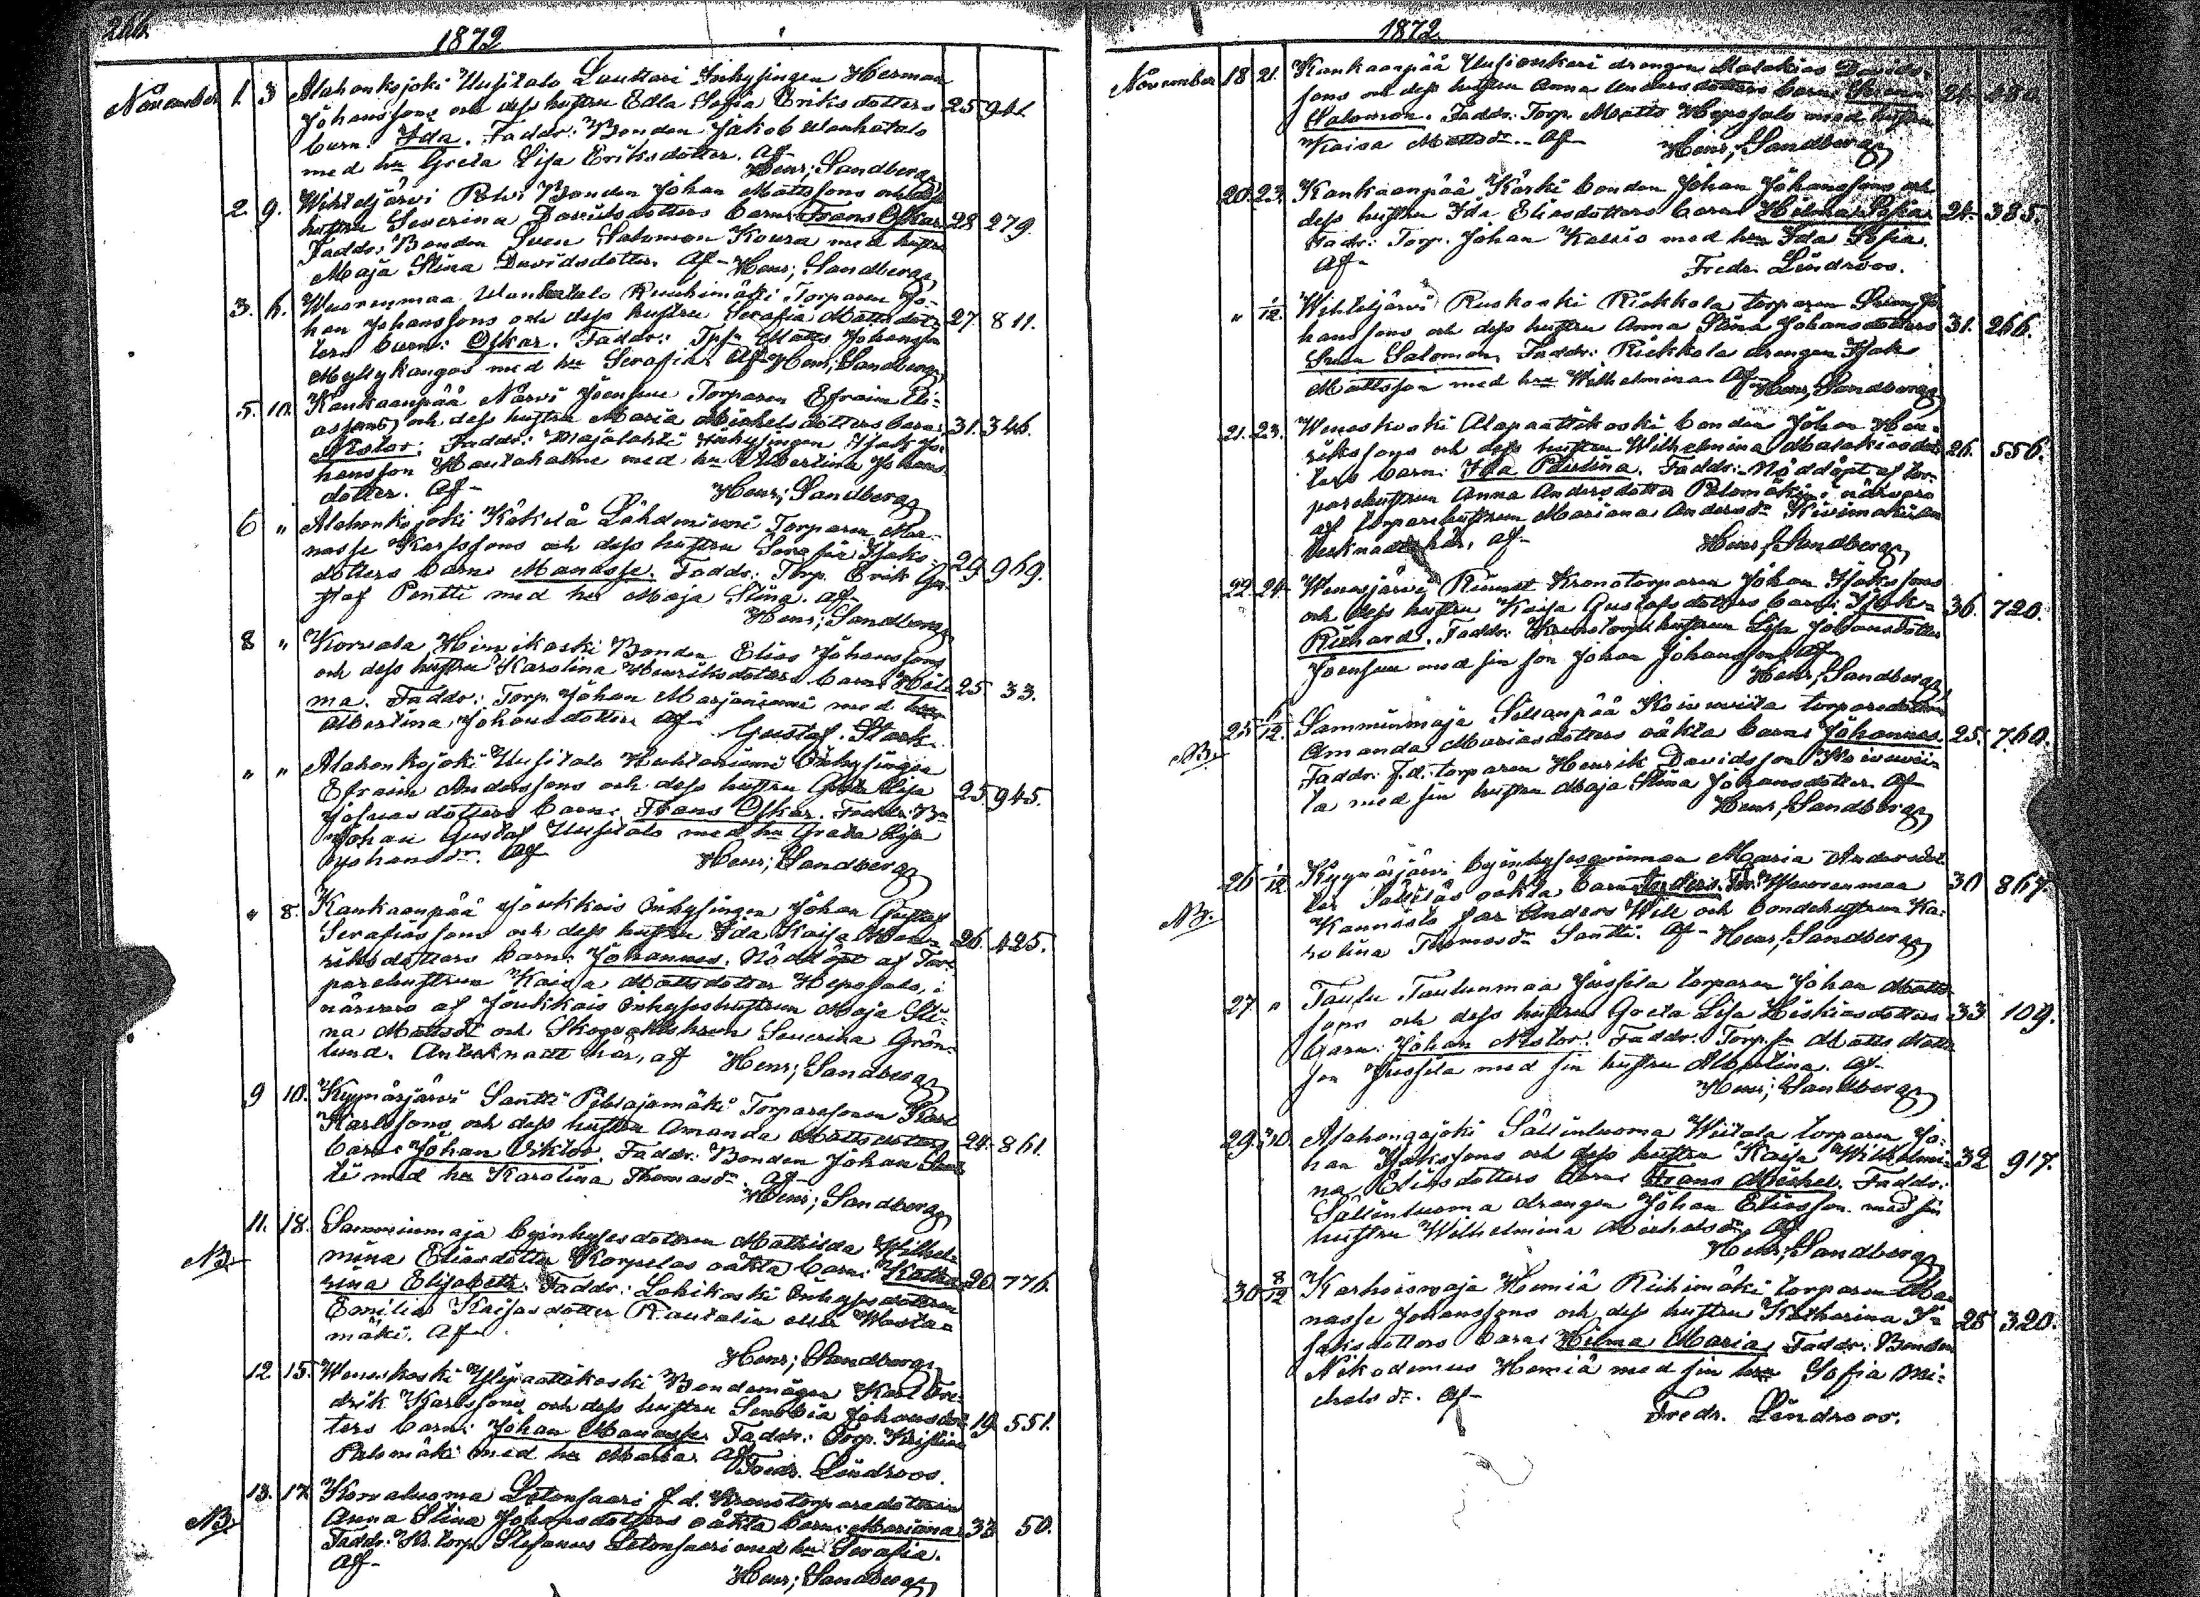 266.
1872
November 1. 3 Alahonkojoki Uusitalo Luuttari Inhysingen Herman
Johanssons och dess hustru Edla Sofia Eriksdotters 25 941.
barn: Ida. Faddr: Bonden Jakob
med hu Greta Lisa Eriksdotter. Af
Henr; Sandberg
2. 9. Wihteljärvi Bonden Johan Mattssons och dess
hustru Severina Davidsdotters barn: Frans Oskar 28 279.
Faddr: Bonden Sven Salomon Koura med hustru
Maja Stina Davidsdotter. Af Henr; Sandberg
3. 6. Wuorenmaa Ruuhimäki Torparen Jo-
han Johanssons och dess hustru Serafia Mattsdot- 27 811.
ters barn: Oskar. Faddr: Matts Johansson
Myllykangas med hu Serafia. Af Henr; Sandberg
5. 10. Kankaanpää Närvi Joensuu Torparen Efraim Eli-
assons och dess hustru Maria Michelsdotters barn: 31. 346.
Nestor. Faddr: Majalahti Inhysingen Isak Jo-
hansson Hautaholme med hu Albertina Johans
dotter. Af
Henr; Sandberg
6 " Alahonkojoki Kökelä Lähdeniemi Torparen Ma-
nasse Karlssons och dess hustru Isaks-
dotters barn: Manasse. Faddr: Torp. Erik Gu- 29 969.
staf Pentti med hu Maja Stina. Af
Henr; Sandberg
8 " Korvala Hirvikoski Bonden Elias Johanssons
och dess hustru Karolina Henriksdotters barn: Hil- 25 33.
ma. Faddr: Torp. Johan Marjaniemi med hu
Albertina Johansdotter. Af
Gustaf Stark.
" " Alahonkojoki Uusitalo Huhtaniemi Inhysingen
Efraim Anderssons och dess hustru Greta Lisa
Josuasdotters barn: Frans Oskar. Faddr: Bn 25 945.
Johan Gustaf Uusitalo med hu Greta Lisa
Johansdr. Af Henr; Sandberg
" 8. Kankaanpää Joukkois Inhysingen Johan Gustaf
Serafiassons och dess hustru Ida Kaisa Hen- 26. 425.
riksdotters barn: Johannes. Nöddöpt af Tor-
parehustrun Kaisa Mattsdotter Heposalo, i
närvaro af Joukkois Inhyseshustrun Maja Sti-
na Mattsdr och Skogvaktshrun Severina Grön-
lund. Antecknadt här, af Henr; Sandberg
9 10. Kyynärjärvi Santti Pelsajamäki Torparesonen Karl
Karlssons och dess hustru Amanda Mattsdotters
barn: Johan Viktor. Faddr: Bonden Johan Sant- 24. 861.
ti med hu Karolina Thomasdr. Af
Henr; Sandberg
NB.
11. 18. Samminmaja byinhysesdottren Mathilda Wilhel-
mina Eliasdotter Korpelas oäkta barn: Katha-
rina Elisabeth. Faddr: Lohikoski Inhysesdottren 20. 776.
Emilia Kaisasdotter Rautalin eller Wasta-
mäki. Af
Henr; Sandberg
12 15. Weneskoski Ylipaattikoski Bondemågen Karl Fre-
drik Karlssons och dess hustru Johansdot-
ters barn: Johan Manasse. Faddr: Torp. Kristian 19. 551.
Palomäki med hu Maria. Af
Fredr. Lindroos.
NB.
13. 17. Korvaluoma Letonsaari f.d. Kronotorparedottren
Anna Stina Johansdotters oäkta barn: Mariana 33 50.
Faddr: Kr. torp. Stefanus Letonsaari med hu Serafia.
Af
Henr; Sandberg
1872
November 18 21. Kankaanpää drängen Malakias Davids-
sons och dess hustru Anna Andersdotters barn:
Salomon. Faddr: Torp. Matts Heposalo med hustru
Kaisa Mattsdr. Af Henr; Sandberg
20. 23. Kankaanpää Kärki bonden Johan Johanssons och
dess hustru Ida Eliasdotters barn: Hilma Sofia. 24. 385.
Fadr: Torp. Johan Kallio med hu Ida Sofia.
Af
Fredr. Lindroos.
" 1/12. Wihteljärvi Ruskaski Riekkola torparen Sven Jo-
hanssons och dess hustru Anna Stina Johansdotters 31. 266.
Sven Salomon. Faddr: Riekkola drängen Isak
Mattsson med hu Wilhelmina. Af Henr; Sandberg
21. 23. Weneskoski Alapaattikoski bonden Johan Hen-
rikssons och dess hustru Wilhelmina Malakiasdot- 26. 556.
ters barn: Ida Paulina. Faddr: Nöddöpt af tor-
parehustrun Anna Andersdotter Palomäki i närvaro
af torparehustrun Mariana Andersdr Kivimäki an-
tecknadt här, af
Henr; Sandberg
22. 24. Wenesjärvi Kronotorparen Johan Isakssons
och dess hustru Kaisa Gustafsdotters barn: Isak 36. 720.
Richard. Faddr: Kronotorp. hustrun Lisa Johansdotter
Joensuu med sin son Johan Johansson. Af
Henr; Sandberg
NB.
25 6/12. Samminmaja Sillanpää Koivuviita torparedottren
Amanda Mariasdotters oäkta barn: Johannes. 25. 760.
Faddr: f.d. torparen Henrik Davidsson Koivuvii-
ta med sin hustru Maja Stina Johansdotter. Af
Henr; Sandberg
NB.
26 1/12. Kyynärjärvi byinhysesqvinnan Maria Andersdot-
ter oäkta barn: Anders. Fdr: Wuorenmaa 30 867.
Kannisto far Anders Wilk och bondehustrun Ka-
rolina Thomasdr Santti. Af Henr; Sandberg
27 " Taulu Taulunmaa Jussila torparen Johan Matts-
sons och dess hustru Greta Lisa Hiskiasdotters 33. 109.
barn: Johan Nestor. Faddr: Torp.sn Matts Matts-
son Jussila med sin hustru Albertina. Af
Henr; Sandberg
29. 30. Alahongojoki Sällinluoma Wiitala torparen Jo-
han Isakssons och dess hustru Kaisa Wilhelmi- 32 917.
na Eliasdotters barn: Frans Michel. Faddr:
Sällinluoma drängen Johan Eliasson med sin
hustru Wilhelmina Michelsdr. Af
Henr; Sandberg
30 8/12 Karhoismaja Hemiä Riihimäki torparen Ma-
nasse Johanssons och dess hustru Katharina I- 25 320.
saksdotters barn: Hilma Maria. Faddr: Bonden
Nikodemus Hemiä med sin hu Sofia Mi-
chelsdr. Af
Fredr. Lindroos.